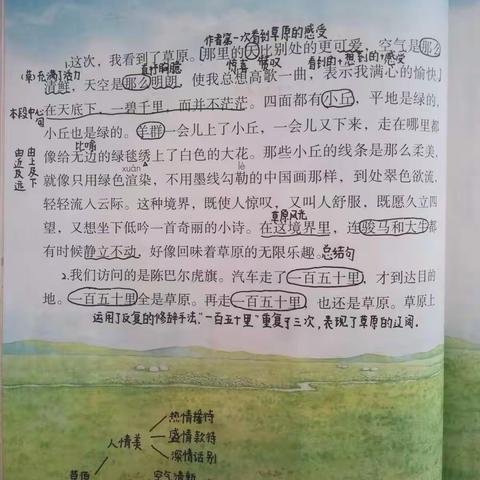 作者第一次看到草原的感受
1.这次，我看到了草原。那里的天比别处的更可爱，空气是那么
直抒胸臆 惊喜 赞叹 看到的+想到的+感受
清鲜，天空是那么明朗，使我总想高歌一曲，表示我满心的愉快。
本段中心句
在天底下，一碧千里，而并不茫茫。四面都有小丘，平地是绿的，
小丘也是绿的。羊群一会儿上了小丘，一会儿又下来，走在哪里都
由近及远 由上及下
比喻
像给无边的绿毯绣上了白色的大花。那些小丘的线条是那么柔美，
xuàn lè
就像只用绿色渲染，不用墨线勾勒的中国画那样，到处翠色欲流，
轻轻流入云际。这种境界，既使人惊叹，又叫人舒服，既愿久立四
草原风光
望，又想坐下低吟一首奇丽的小诗。在这境界里，连骏马和大牛都
有时候静立不动，好像回味着草原的无限乐趣。总结句
2.我们访问的是陈巴尔虎旗。汽车走了一百五十里，才到达目的
地。一百五十里全是草原。再走一百五十里，也还是草原。草原上
运用了反复的修辞手法，"一百五十里"重复了三次，表现了草原的辽阔。
热情接待
人情美 盛情款待
深情话别
草原 空气清新